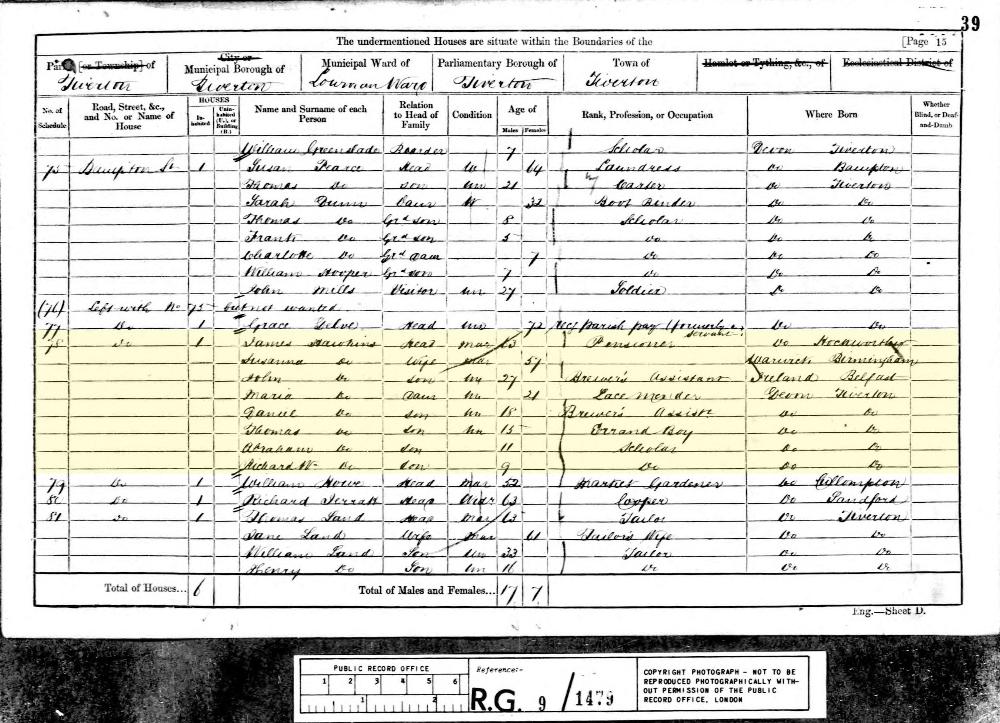 39
The undermentioned Houses are situate within the Boundaries of the [Page 15
[or Township] of City or Municipal Borough of Municipal Ward of Parliamentary Borough of Town of Hamlet or Tything, &c., of Ecclesiastical District of
Tiverton Tiverton Lowman Ward Tiverton Tiverton
No. of Schedule Road, Street, &c., and No. or Name of House HOUSES Inhabited Uninhabited (U.), or Building (B.) Name and Surname of each Person Relation to Head of Family Condition Age of Males Females Rank, Profession, or Occupation Where Born Whether Blind, or Deaf-and-Dumb
William Greenslade Boarder 7 Scholar Devon Tiverton
75 Bampton St 1 Susan Pearce Head W 64 Laundress Do Bampton
Thomas Do Son Un 21 Carter Do Tiverton
Sarah Dunn Daur W 32 Boot Binder Do Do
Thomas Do Grd son 8 Scholar Do Do
Frank Do Grd son 5 Do Do Do
Charlotte Do Grd Daur 7 Do Do Do
William Hooper Grd son 7 Do Do Do
John Mills Visitor Un 27 Soldier Do Do
(76) Left with No 75 but not wanted
77 Do 1 Grace Head Un 72 Recg parish pay (formerly a servant) Do Do
78 Do 1 James Hawkins Head Mar 63 Pensioner Do Hockworthy
Susanna Do Wife Mar 57 Warwick Birmingham
John Do son Un 27 Brewer's Assistant Ireland Belfast
Maria Do Daur Un 21 Lace Mender Devon Tiverton
Daniel Do son Un 18 Brewer's Assistt Do Do
Thomas Do son Un 15 Errand Boy Do Do
Abraham Do son 11 Scholar Do Do
Richard W. Do son 9 Do Do Do
79 Do 1 William Howe Head Mar 52 Market Gardener Do Cullompton
80 Do 1 Richard Head Widr 63 Cooper Do Sandford
81 Do 1 Thomas Land Head Mar 63 Tailor Do Tiverton
Jane Land Wife Mar 61 Tailor's Wife Do Do
William Land Son Un 33 Tailor Do Do
Henry Do Son Un 16 Do Do Do
Total of Houses... 6 Total of Males and Females... 17 7
Eng.—Sheet D.
PUBLIC RECORD OFFICE
1 2 3 4 5 6
1 2
Reference:-
R.G. 9 / 1479
COPYRIGHT PHOTOGRAPH - NOT TO BE
REPRODUCED PHOTOGRAPHICALLY WITH-
OUT PERMISSION OF THE PUBLIC
RECORD OFFICE, LONDON